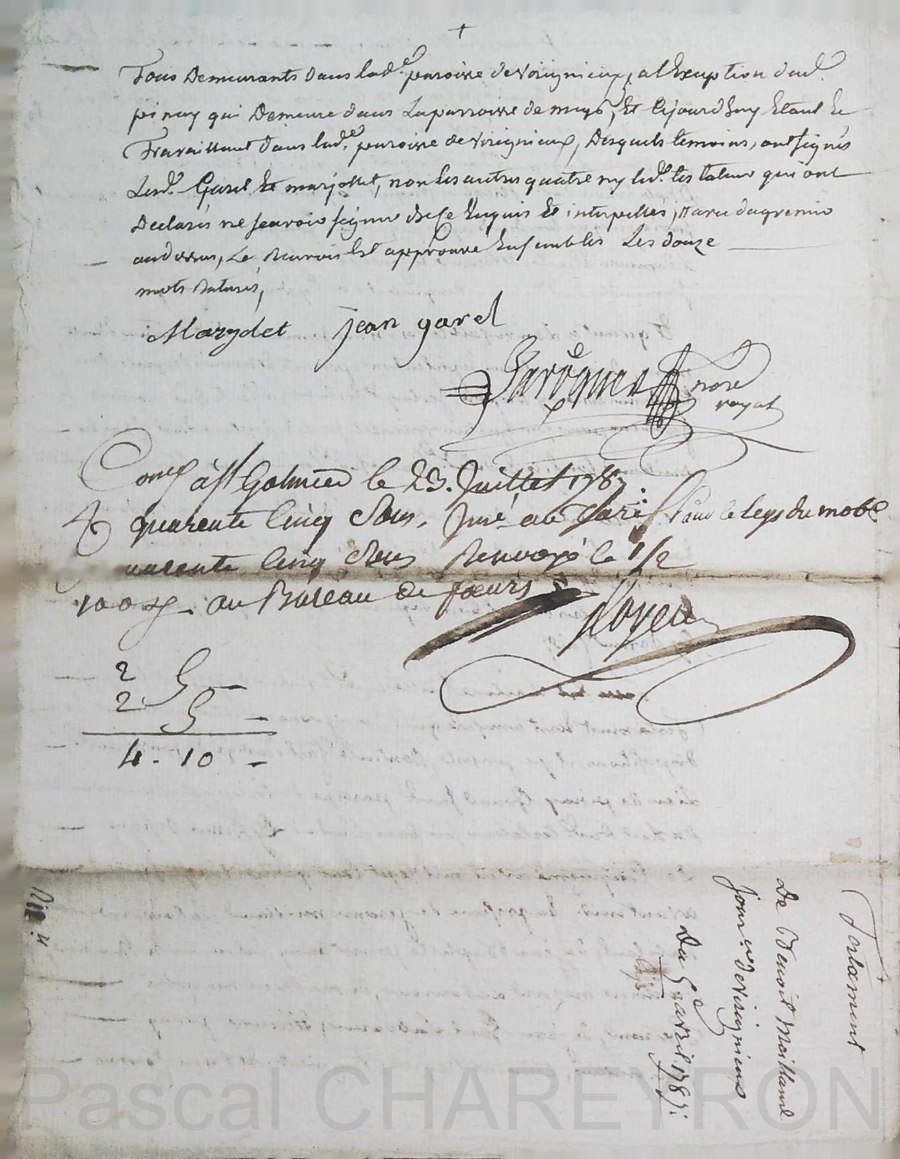 Tous Demeurants dans lad.e paroisse de Virignieux, a l'Exception dud.
pinay qui Demeure dans La parroisse de mays, Et cejourd'huy Etant Et
Travaillant dans lad.e paroisse de virignieux, Desquels temoins, ont signés
Lesd. Garel Et marjollet, non les autres quatre ny led. testateur qui ont
Declarés ne scavoir signer de ce Enquis Et interpellés,
audessus, Le Renvois Est approuvé Ensembles Les douze
mots Raturés,
jean garel
no.re
royal
à St Galmier le 23. Juillet 178
quarente cinq sous, pour le legs du mobe
quarente cinq sous Renvoyé le 1/2
100e au Bureau de feurs
2 5 -
2 5 -
4 - 10 -
Testament
De Benoit Mailland
jour.er de virignieux
Du 5 avril 1787:
Pascal CHAREYRON